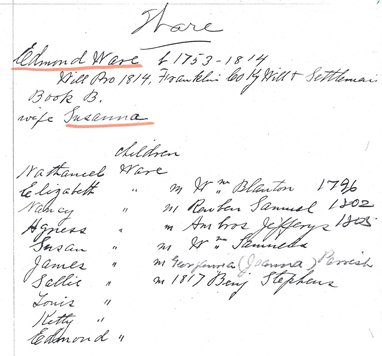 Ware
Edmond Ware b 1753-1814
Will Pro 1814, Franklin Co Ky Will & Settlement
Book B.
wife Susanna
children
Nathaniel Ware
Elizabeth " m Wm Blanton 1796
Nancy " m Reuben Samuel 1802
Agness " m Ambros Jefferys 1805
Susan " m Wm Samuels
James " m Georganna (Joanna) Parrish
Sallie " m 1817 Benj Stephens
Louis "
Kitty "
Edmond "